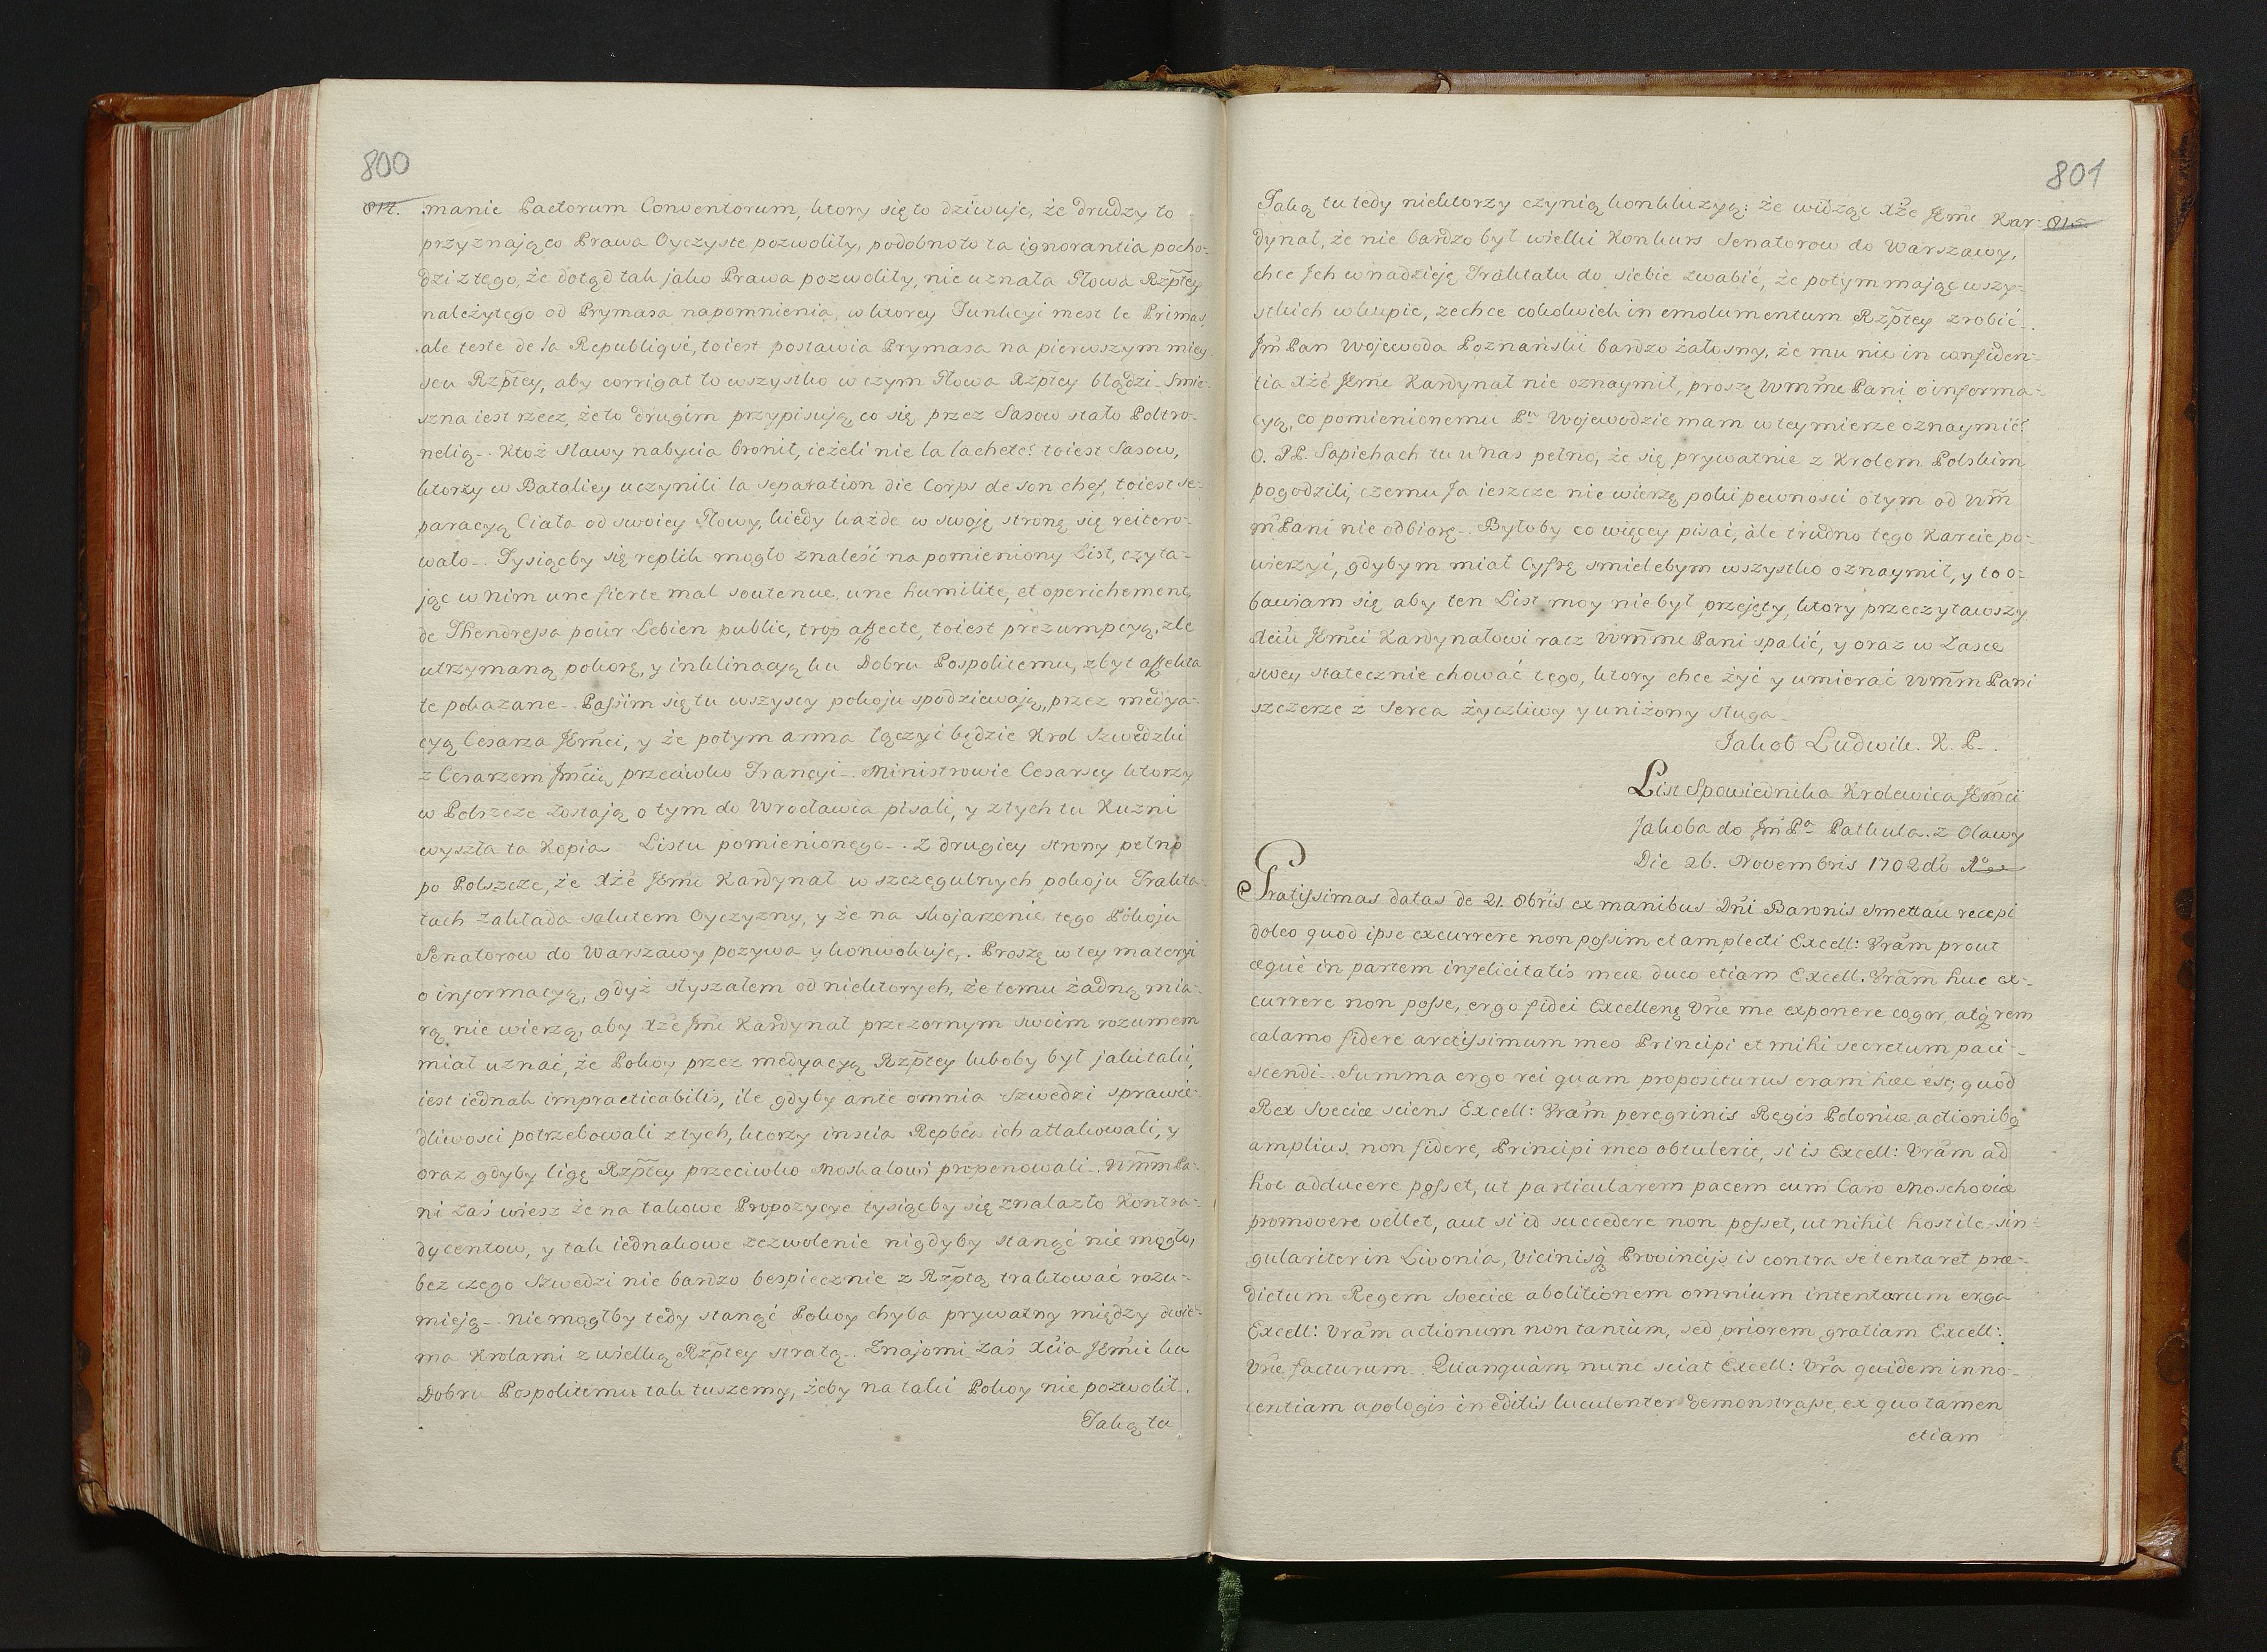 800
814.
manie Pactorum Conventorum, ktory się to dziwuje, że drudzy to
przyznają co Prawa Oyczyste pozwoliły, podobnoto ta ignorantia pocho-
dzi z tego, że dotąd tak jako Prawa pozwoliły, nie uznała Głowa Rzp̃tey
należytego od Prymasa napomnienia, w ktorey Funkcyi mest le Primas,
ale teste de la Republiqué, toiest postawia Prymasa na pierwszym miey-
scu Rzp̃tey, aby corrigat to wszystko w czym Głowa Rzp̃tey błądzi. Smie-
szna iest rzecz, że to drugim przypisują, co się przez Sasow stało Poltro-
nelią. Ktoż Sławy nabycia bronił, ieżeli nie la lacheté? toiest Sasow,
ktorzy w Bataliey uczynili la separation die Corps de son chef, toiest se-
paracyą Ciała od swoiey Głowy, kiedy każde w swoję stronę się reitero-
wało. Tysiącby się replik mogło znaleść na pomieniony List, czyta-
jąc w nim une fierte mal soutenue, une humilite, et operichement,
de Thendressa pour Lebien public, trop affecte, toiest prezumpcyą, zle
utrzymaną pokorę, y inklinacyą ku Dobru Pospolitemu, zbyt affekta
te pokazane. Passim się tu wszyscy pokoju spodziewają, przez medya-
cyą Cesarza JEm̃ci, y że potym arma łączyć będzie Krol Szwedzki
z Cesarzem Jm̃cią przeciwko Francyi. Ministrowie Cesarscy ktorzy
w Polszcze zostają o tym do Wrocławia pisali, y z tych tu Kuzni
wyszła ta Kopia Listu pomienionego. Z drugiey strony pełno
po Polszcze, że Xże JEmć Kardynał w szczegulnych pokoju Trakta-
tach zakłada salutem Oyczyzny, y że na skojarzenie tego Pokoju
Senatorow do Warszawy pozywa y konwokuje. Proszę w tey materyi
o informacyą, gdyż słyszałem od niektorych, że temu żadną mia-
rą nie wierzą, aby Xże Jm̃ć Kardynał przezornym swoim rozumem
miał uznać, że Pokoy przez medyacyą Rzp̃tey luboby był jakitaki,
iest iednak impracticabilis, ile gdyby ante omnia Szwedzi sprawie-
dliwości potrzebowali z tych, ktorzy inscia Repbca ich attakowali, y
oraz gdyby ligę Rzp̃tey przeciwko Moskalowi proponowali. Wm̃m Pa-
ni zaś wiesz że na takowe Propozycye tysiącby się znalazło Kontra-
dycentow, y tak iednakowe zezwolenie nigdyby stanąć nie mogło,
bez czego Szwedzi nie bardzo bespiecznie z Rzp̃tą traktować rozu-
mieją. nie mogłby tedy stanąć Pokoy chyba prywatny między dwie-
ma Krolami z wielką Rzp̃tey stratą. Znajomi zaś Xcia JEmci ku
Dobru Pospolitemu tak tuszemy, żeby na taki Pokoy nie pozwolił.
Taką tu
801
815.
Taką tu tedy niektorzy czynią konkluzyą: że widząc Xże JEmć Kar-
dynał, że nie bardzo był wielki Konkurs Senatorow do Warszawy,
chce Ich w nadzieję Traktatu do siebie zwabić, że potym mając wszy-
stkich w kupie, zechce cokolwiek in emolumentum Rzp̃tey zrobić.
Jm̃ Pan Wojewoda Poznański bardzo żałosny, że mu nic in confiden-
tia Xże JEmć Kardynał nie oznaymił, proszę Wm̃me Pani o informa-
cyą, co pomienionemu Pu Wojewodzie mam w tey mierze oznaymić?
O. PP. Sapiehach tu u nas pełno, że się prywatnie z Krolem Polskim
pogodzili, czemu Ja ieszcze nie wierzę poki pewności o tym od Wm̃
m̃ Pani nie odbiorę. Byłoby co więcey pisać, ale trudno tego Karcie po-
wierzyć, gdybym miał Cyfrę smielebym wszystko oznaymił, y to o-
bawiam się aby ten List moy nie był przejęty, ktory przeczytawszy
Xciu JEmci Kardynałowi racz Wm̃me Pani spalić, y oraz w Łasce
swey statecznie chować tego, ktory chce żyć y umierać Wm̃m Pani
szczerze z Serca życzliwy y uniżony sługa.
Jakob Ludwik. K. P.
List Spowiednika Krolewica JEm̃ci
Jakoba do Jm̃ Pa Patkula. z Oławy
Die 26. Novembris 1702do
Gratissimas datas de 21. 8bris ex manibus Dn̄i Baronis Smettau recepi
doleo quod ipse excurrere non possim et amplecti Excell: Vrãm prout
æque in partem infelicitatis meæ duco etiam Excell. Vrãm huc ex-
currere non posse, ergo fidei Excellenę Vræ me exponere cogor, atq̨ rem
calamo fidere arctissimum meo Principi et mihi secretum paci-
scendi. Summa ergo rei quam propositurus eram hæc est; quod
Rex Sveciæ sciens Excell: Vrãm peregrinis Regis Poloniæ actionibq
amplius non fidere, Principi meo obtulerit, si is Excell: Vrãm ad
hoc adducere posset, ut particularem pacem cum Caro Moschoviæ
promovere vellet, aut si id succedere non posset, ut nihil hostile sin-
gulariter in Livonia, vicinisq̨ Provincijs is contra se tentaret præ-
dictum Regem Sveciæ abolitionem omnium intentarum erga
Excell: Vrãm actionum non tantùm, sed priorem gratiam Excell:
Vræ facturum. Quanquàm nunc sciat Excell: Vrã quidem inno-
centiam apologis in editis luculenter demonstrasse, ex quo tamen
etiam